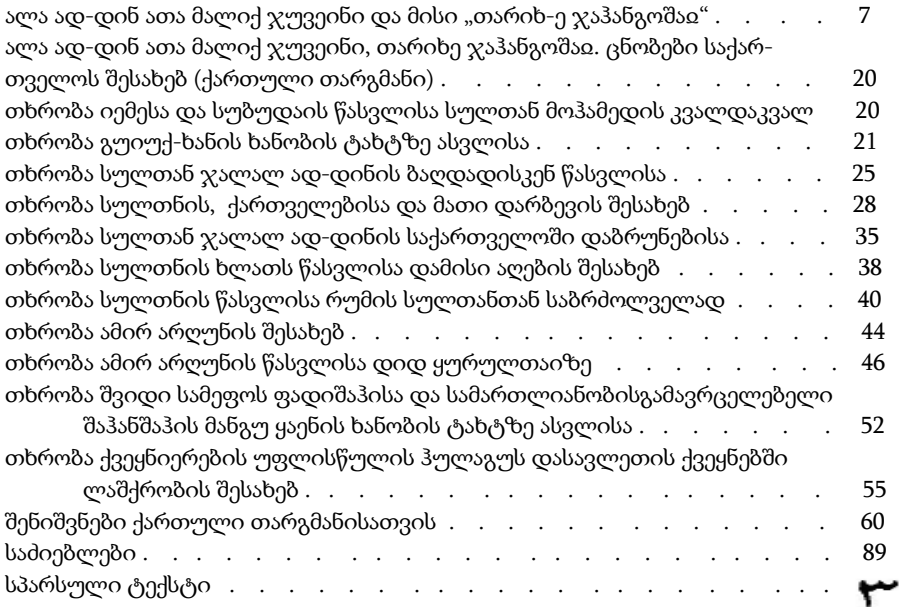 ალა ად-დინ ათა მალიქ ჯუვეინი და მისი „თარიხ-ე ჯაჰანგოშაჲ“ . . . . 7
ალა ად-დინ ათა მალიქ ჯუვეინი, თარიხე ჯაჰანგოშაჲ. ცნობები საქარ-
თველოს შესახებ (ქართული თარგმანი) . . . . . . . . . . . . . 20
თხრობა იემესა და სუბუდაის წასვლისა სულთან მოჰამედის კვალდაკვალ 20
თხრობა გუიუქ-ხანის ხანობის ტახტზე ასვლისა . . . . . . . . . . 21
თხრობა სულთან ჯალალ ად-დინის ბაღდადისკენ წასვლისა . . . . . 25
თხრობა სულთნის, ქართველებისა და მათი დარბევის შესახებ . . . . . 28
თხრობა სულთან ჯალალ ად-დინის საქართველოში დაბრუნებისა . . . . 35
თხრობა სულთნის ხლათს წასვლისა დამისი აღების შესახებ . . . . . . 38
თხრობა სულთნის წასვლისა რუმის სულთანთან საბრძოლველად . . . . 40
თხრობა ამირ არღუნის შესახებ . . . . . . . . . . . . . . . . 44
თხრობა ამირ არღუნის წასვლისა დიდ ყურულთაიზე . . . . . . . . 46
თხრობა შვიდი სამეფოს ფადიშაჰისა და სამართლიანობისგამავრცელებელი
შაჰანშაჰის მანგუ ყაენის ხანობის ტახტზე ასვლისა . . . . . . . 52
თხრობა ქვეყნიერების უფლისწულის ჰულაგუს დასავლეთის ქვეყნებში
ლაშქრობის შესახებ . . . . . . . . . . . . . . . . . 55
შენიშვნები ქართული თარგმანისათვის . . . . . . . . . . . . . 60
საძიებლები . . . . . . . . . . . . . . . . . . . . . . . 89
სპარსული ტექსტი . . . . . . . . . . . . . . . . . . . . ٣